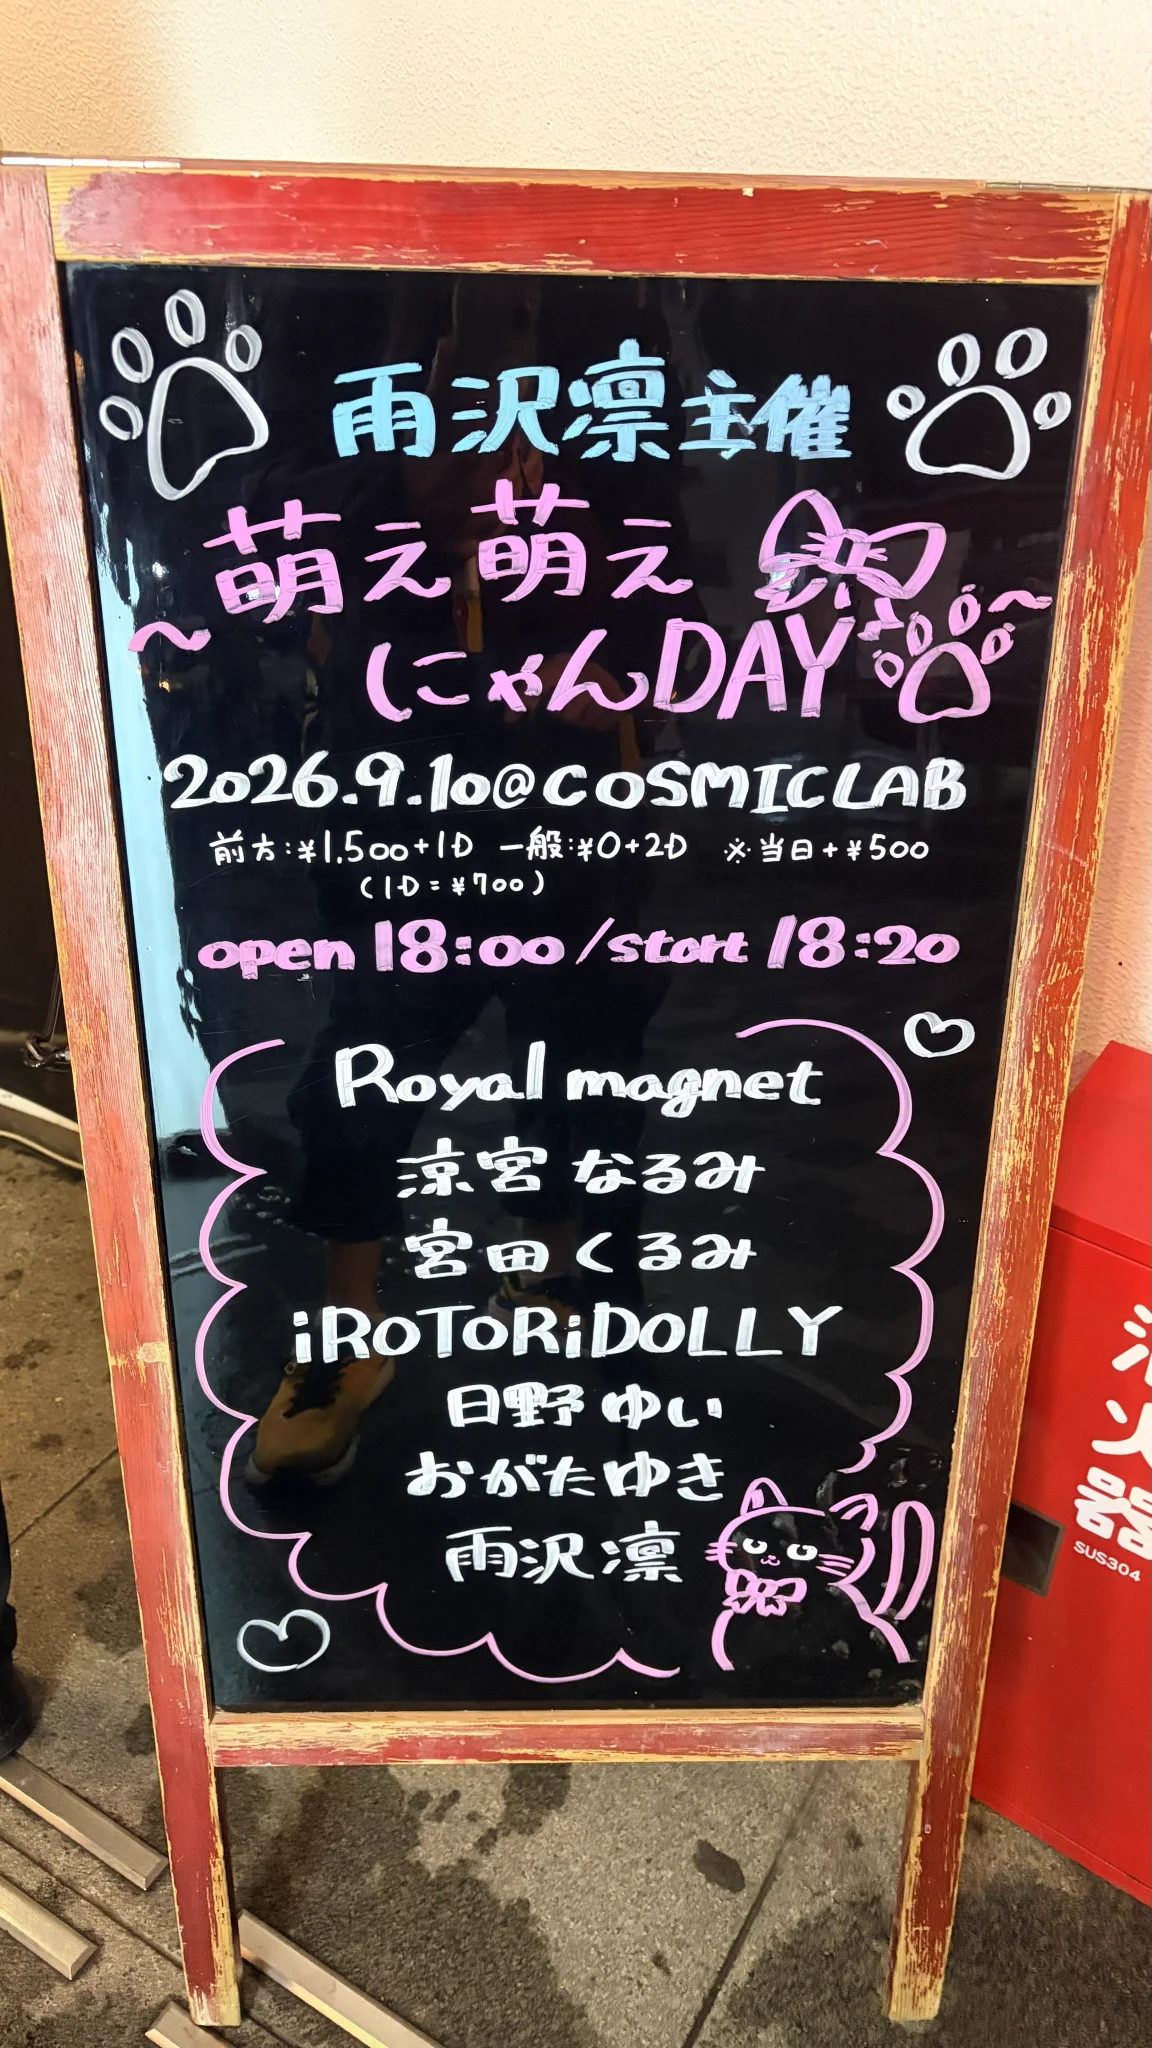 雨沢凛主催
萌え萌え
～にゃんDAY～
2026.9.10@COSMICLAB
前方:¥1,500+1D 一般:¥0+2D ※当日+¥500
(1D=¥700)
open 18:00/start 18:20
Royal magnet
涼宮なるみ
宮田くるみ
iROToRiDOLLY
日野ゆい
おがたゆき
雨沢凛
消火器
SUS304